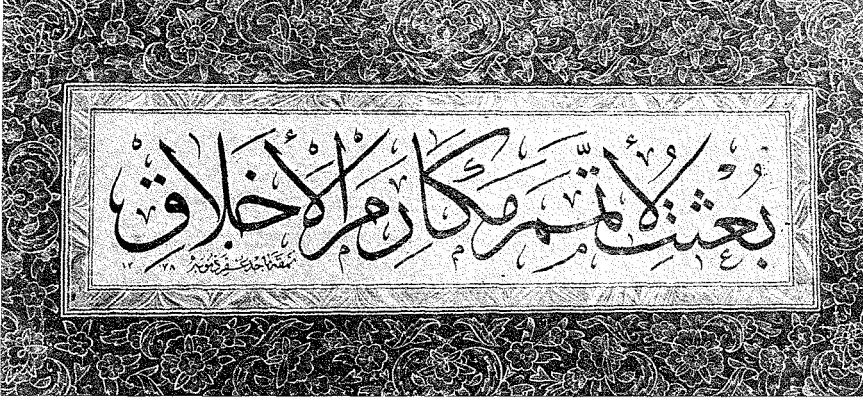 بُعِثْتُ لِأُتَمِّمَ مَكَارِمَ الْأَخْلَاقِ
١٢ ٧٨